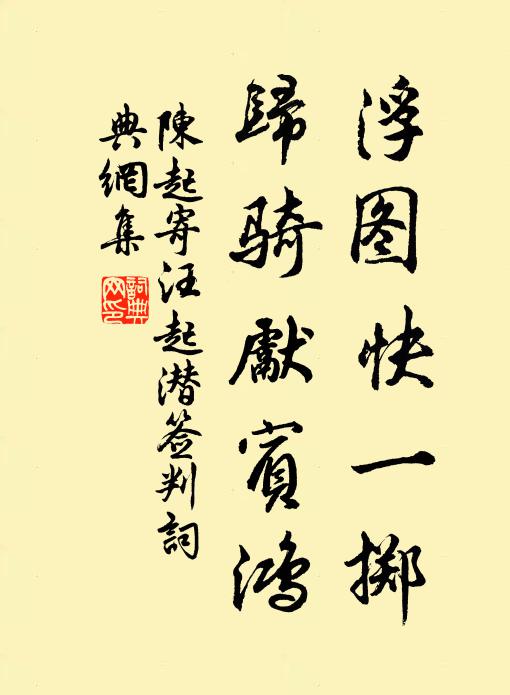 浮图快一掷
歸骑獻賓鴻
陳起寄汪起潜签判詞
典網集
詞典
网印